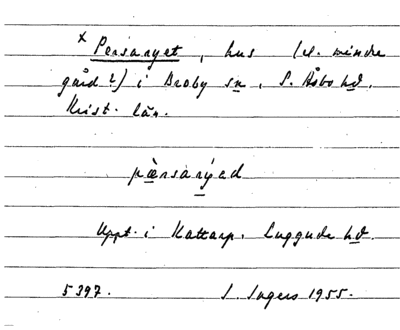 x Persaryet, hus (el. mindre
gård?) i Broby sn, S. Åsbo hd.
Krist. län.
pærsarýed
Uppt. i Kattarp, Luggude hd.
5397. I. Ingers 1955.